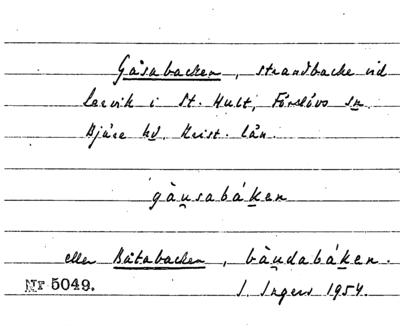 Gåsabacken, strandbacke vid
Lervik i St. Hult, Förslövs sn
Bjäre hd, Krist. län.
gàu̯sabák̬en
eller Båtabacken, bàu̯dabák̬en.
Nr 5049. I. Ingers 1954.